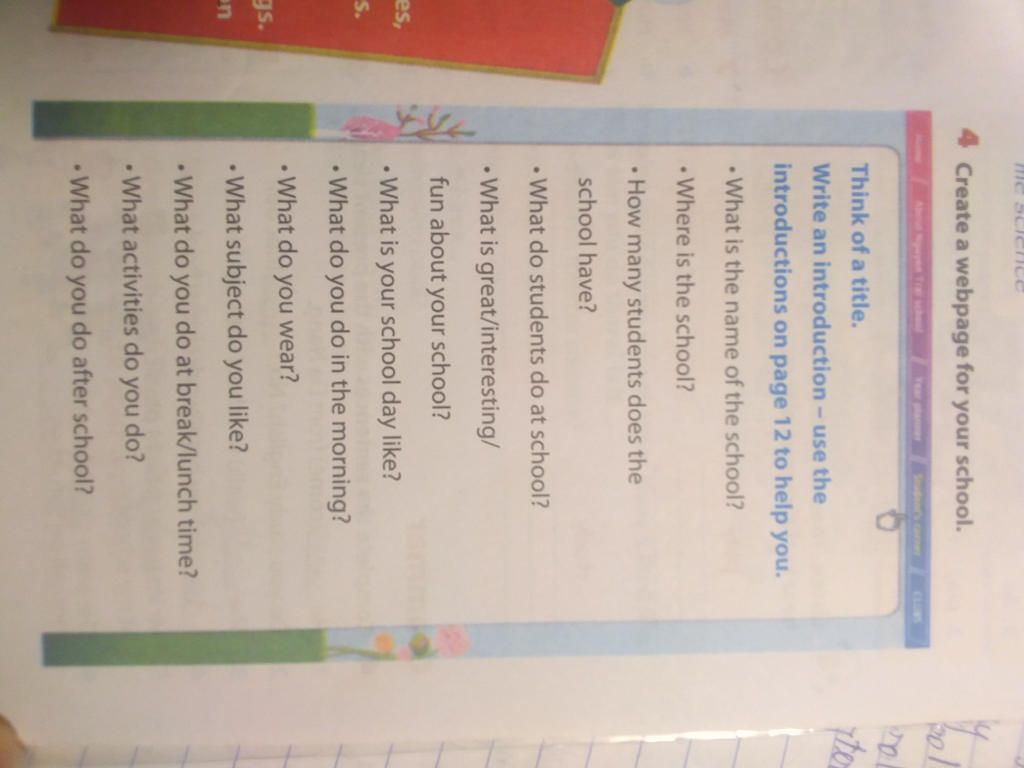 life science
4 Create a webpage for your school.
Home / About Nguyen Top school / Year planner / Student's corner / CLUBS
Think of a title.
Write an introduction – use the
introductions on page 12 to help you.
• What is the name of the school?
• Where is the school?
• How many students does the
school have?
• What do students do at school?
• What is great/interesting/
fun about your school?
• What is your school day like?
• What do you do in the morning?
• What do you wear?
• What subject do you like?
• What do you do at break/lunch time?
• What activities do you do?
• What do you do after school?
es,
s.
gs.
on